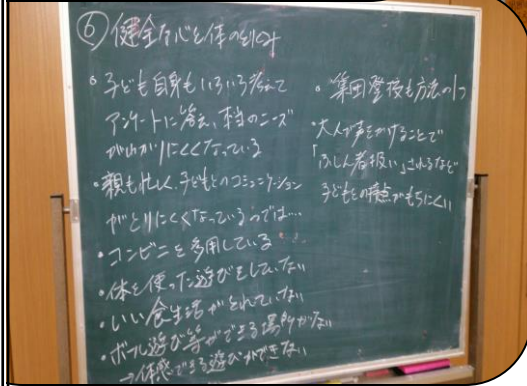 ⑥健全な心と体の
・子ども自身もいろいろ考えて
アンケートに答え、本当のニーズ
がわかりにくくなっている
・親も忙しく、子どもとのコミュニケーション
がとりにくくなっているのでは…
・コンビニを多用している
・体を使った遊びをしていない
・いい食生活がとれていない
・ボール遊び等ができる場所がない
→体感できる遊びができない
・集団登校も方法の1つ
・大人が声をかけることで
「ふしん者扱い」されるなど
子どもとの接点がもちにくい